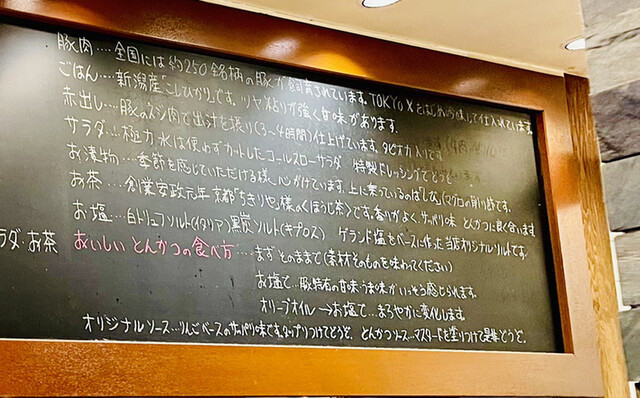 豚肉‥‥全国には約250銘柄の豚が飼育されています。TOKYO X をはじめ お味して仕入れています。
ごはん‥‥新潟産「こしひかり」です。ツヤ、粘りが強く甘味があります。
赤出し‥‥豚のスジ肉で出汁を取り(3~4時間)仕上げています。タピオカ入りです
サラダ‥‥極力水は使わずカットしたコールスローサラダ 特製ドレッシングでどうぞ
お漬物‥‥季節を感じていただける様、心がけています。上に乗っているのは
お茶‥‥創業安政元年 京都「ちきりや」様の<ほうじ茶>です。香りがよく、サッパリ味 とんかつに良く合います
お塩‥‥白トリュフソルト(イタリア)黒炭ソルト(キプロス) ゲランド塩をベースに作った当店オリジナルソルトです。
ラダ・お茶 おいしいとんかつの食べ方‥‥まず そのままで(素材そのものを味わってください)
お塩で‥豚特有の甘味・うま味がいっそう感じられます。
オリーブオイル→お塩で‥まろやかに変化します。
オリジナルソース‥りんごベースのサッパリ味です。タップリつけてどうぞ。とんかつソース‥マスタードを塗りつけて是非どうぞ。